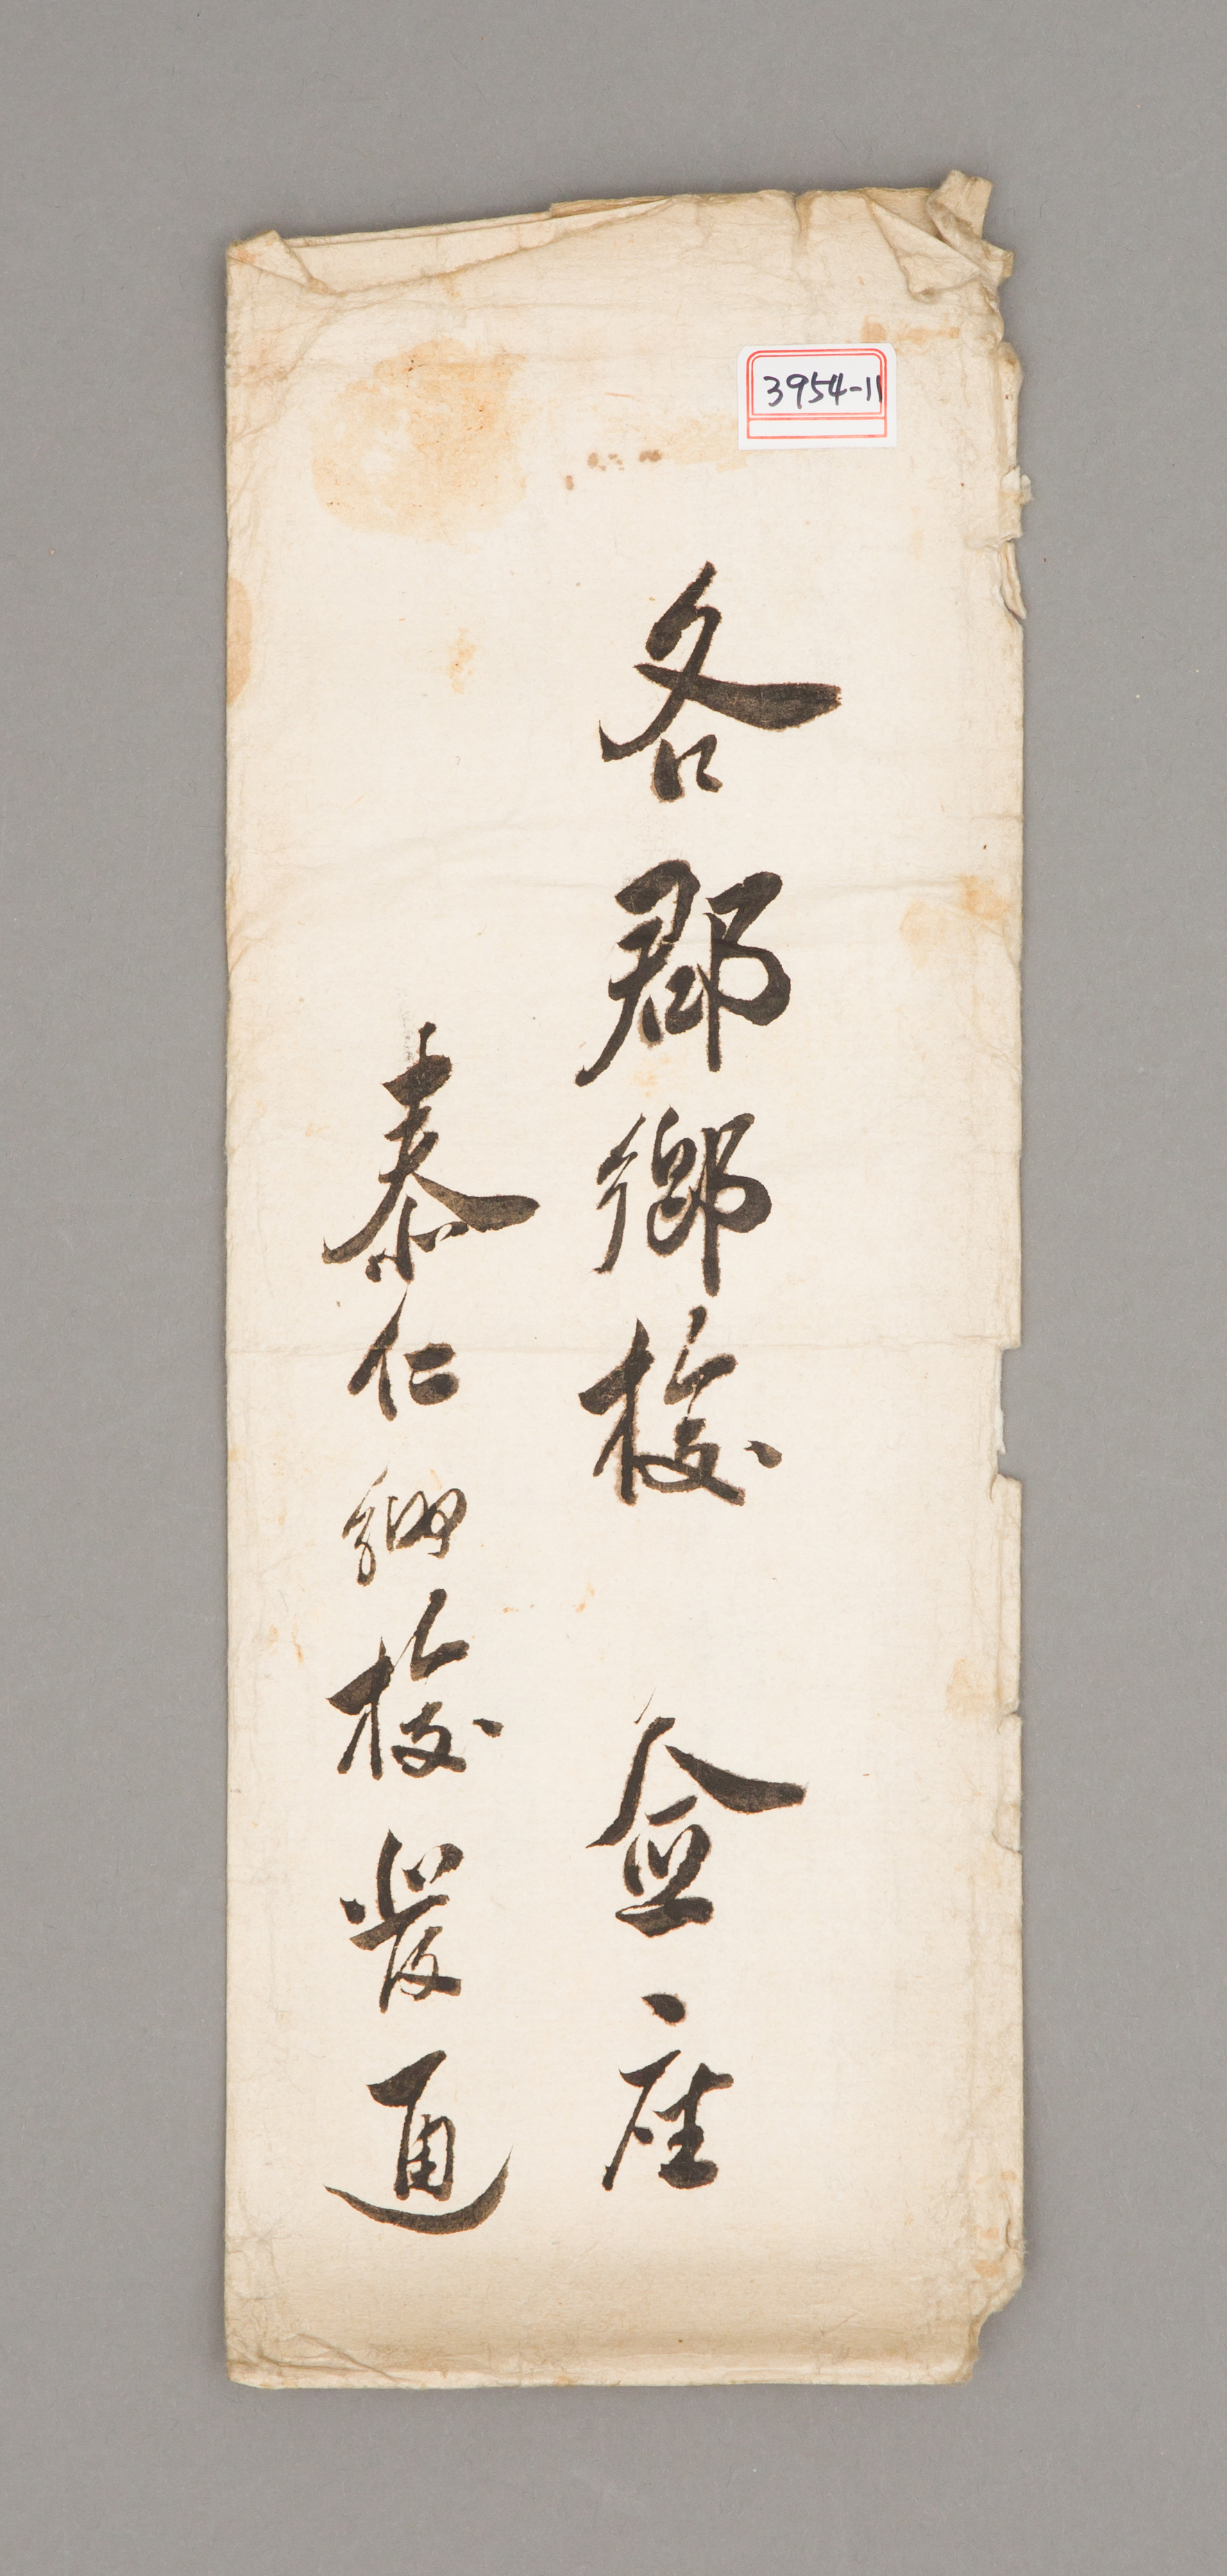 3954-11
各郡鄕校 僉座
泰仁鄕校發通